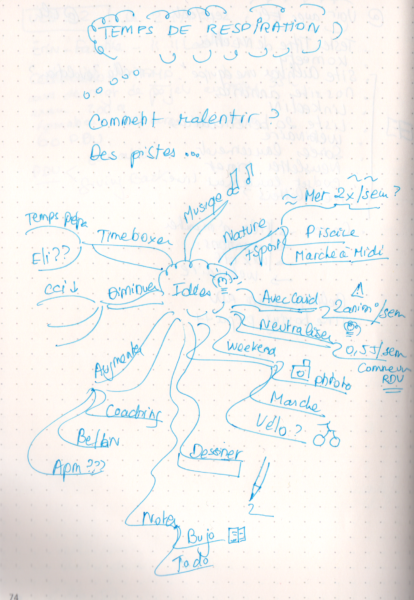 TEMPS DE RESPIRATION
Comment ralentir ?
Des pistes ...
Musique
Nature
+ sport
≈ Mer 2x/sem ?
Piscine
Marche à Midi
Timeboxer
Temps
Eli ??
Diminuer
CCi ↓
Idées
Avec Caïd
2 /sem
Neutraliser
0,5J/sem
Comme un
RDV
Weekend
photo
Marche
Vélo ?
Augmenter
Coaching
Apm ???
Dessiner
Notes
Bujo
Todo
74